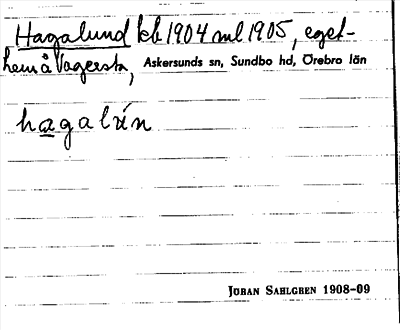 Hagalund kb 1904 ml 1905, eget-
hem å Vagersta, Askersunds sn, Sundbo hd, Örebro län
hagalın
JÖRAN SAHLGREN 1908-09